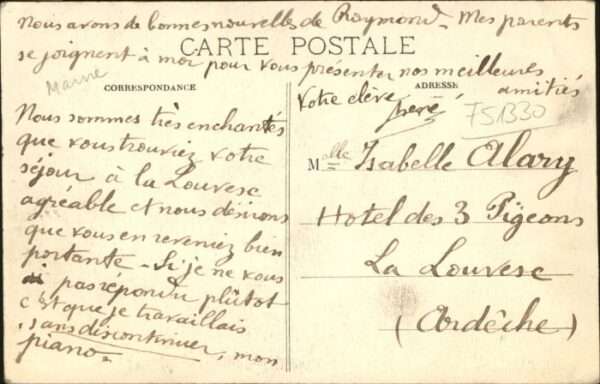 Nous avons de bonnes nouvelles de Raymond. Mes parents
CARTE POSTALE
se joignent à moi pour vous présenter nos meilleures
amitiés
Marne
CORRESPONDANCE
ADRESSE
Votre élève
751330
Nous sommes très enchantés
que vous trouviez votre
séjour à la Louvesc
agréable et nous désirons
que vous en reveniez bien
portante - Si je ne vous
ai pas répondu plûtot
c'est que je travaillais
sans discontinuer, mon
piano -
Mlle Isabelle Alary
Hotel des 3 Pigeons
La Louvesc
(Ardêche)